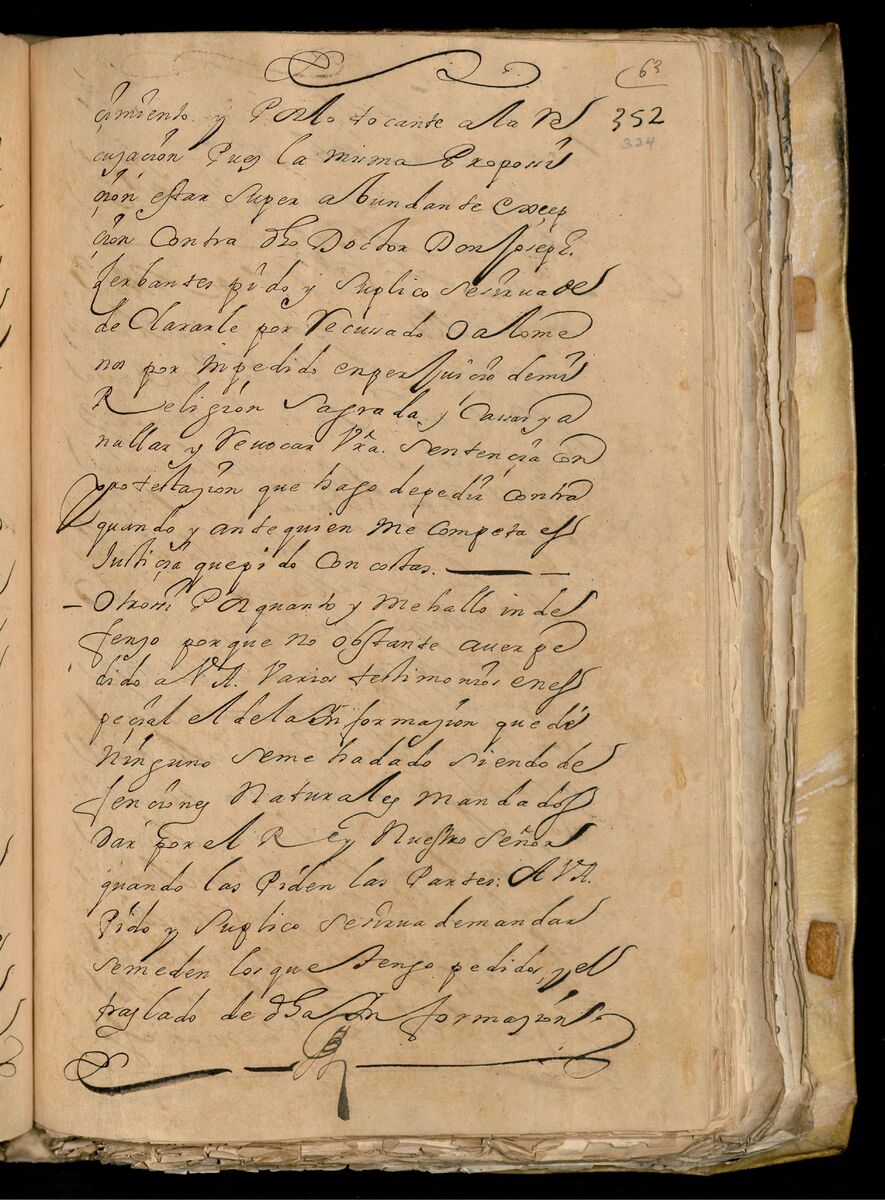 63
352
324
çimiento y Por lo tocante a la Re
cusaçion Pues la misma Proposiçi
çion estar super abundante exçep
çion Contra dho Doctor Don Joseph
Serbantes pido y suplico se sirua de
de Clararle por Recussado O alome
nos por Inpedido en perjuiçio de mi
Religion Sagrada y Cassar y a
nullar y Reuocar Vra. Sentençia con
protestaçion que hago de pedir contra
quando y ante quien me Competa es
Justiçia que pido Con costas.
Otrossi Por quanto y me hallo inde
fenso porque no obstante auer pe
dido a VA. Varios testimonios en es
peçial el de la Informaçion que de
Ninguno se me ha dado siendo de
fenciones Naturales mandados
Dar por el Rey Nuestro Señor
quando las Piden las Partes: A VA.
Pido y suplico se sirua de mandar
se me den los que tengo pedidos, y el
traslado de dha Informaçion